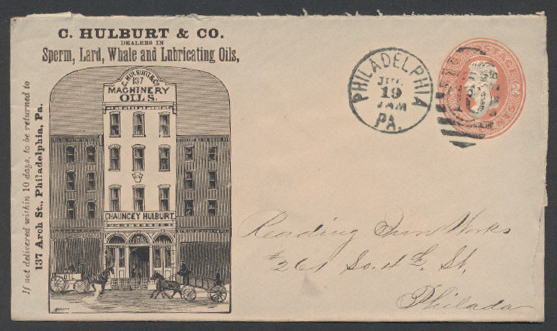 C. HULBURT & CO.
DEALERS IN
Sperm, Lard, Whale and Lubricating Oils,
If not delivered within 10 days, to be returned to
137 Arch St., Philadelphia, Pa.
C. HULBURT & CO.
137
MACHINERY
OILS.
CHAUNCEY HULBURT
OIL
PHILADELPHIA
JUL
19
AM
PA.
POSTAGE
Reading Iron Works
261 So. 4th St,
Philada